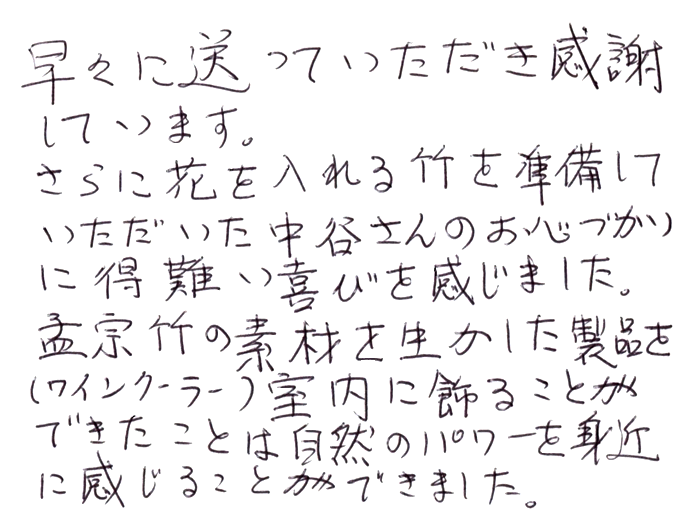 早々に送っていただき感謝
しています。
さらに花を入れる竹を準備して
いただいた中谷さんのお心づかい
に得難い喜びを感じました。
孟宗竹の素材を生かした製品を
(ワインクーラー)室内に飾ることが
できたことは自然のパワーを身近
に感じることができました。